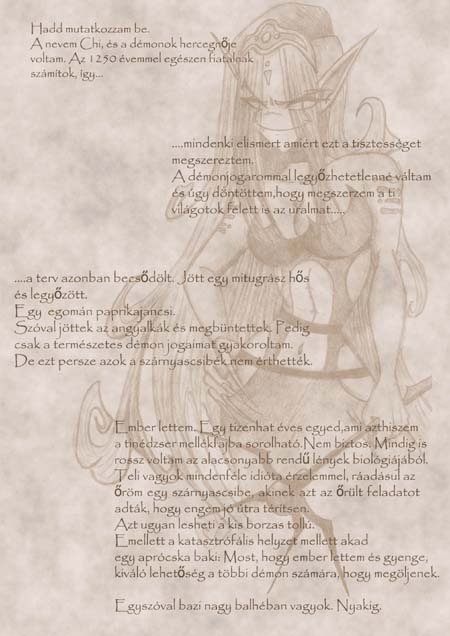 Hadd mutatkozzam be.
A nevem Chi, és a démonok hercegnője
voltam. Az 1250 évemmel egészen fiatalnak
számítok, így...
....mindenki elismert amiért ezt a tisztességet
megszereztem.
A démonjogarommal legyőzhetetlenné váltam
és úgy döntöttem,hogy megszerzem a ti
világotok felett is az uralmat.....
....a terv azonban becsődölt. Jött egy mitugrász hős
és legyőzött.
Egy egomán paprikajancsi.
Szóval jöttek az angyalkák és megbüntettek. Pedig
csak a természetes démon jogaimat gyakoroltam.
De ezt persze azok a szárnyascsibék nem érthették.
Ember lettem. Egy tizenhat éves egyed,ami azthiszem
a tinédzser mellékfajba sorolható.Nem biztos. Mindig is
rossz voltam az alacsonyabb rendű lények biológiájából.
Teli vagyok mindenféle idióta érzelemmel, ráadásul az
őröm egy szárnyascsibe, akinek azt az őrült feladatot
adták, hogy engem jó útra térítsen.
Azt ugyan lesheti a kis borzas tollú.
Emellett a katasztrófális helyzet mellett akad
egy aprócska baki: Most, hogy ember lettem és gyenge,
kiváló lehetőség a többi démon számára, hogy megöljenek.
Egyszóval bazi nagy balhéban vagyok. Nyakig.